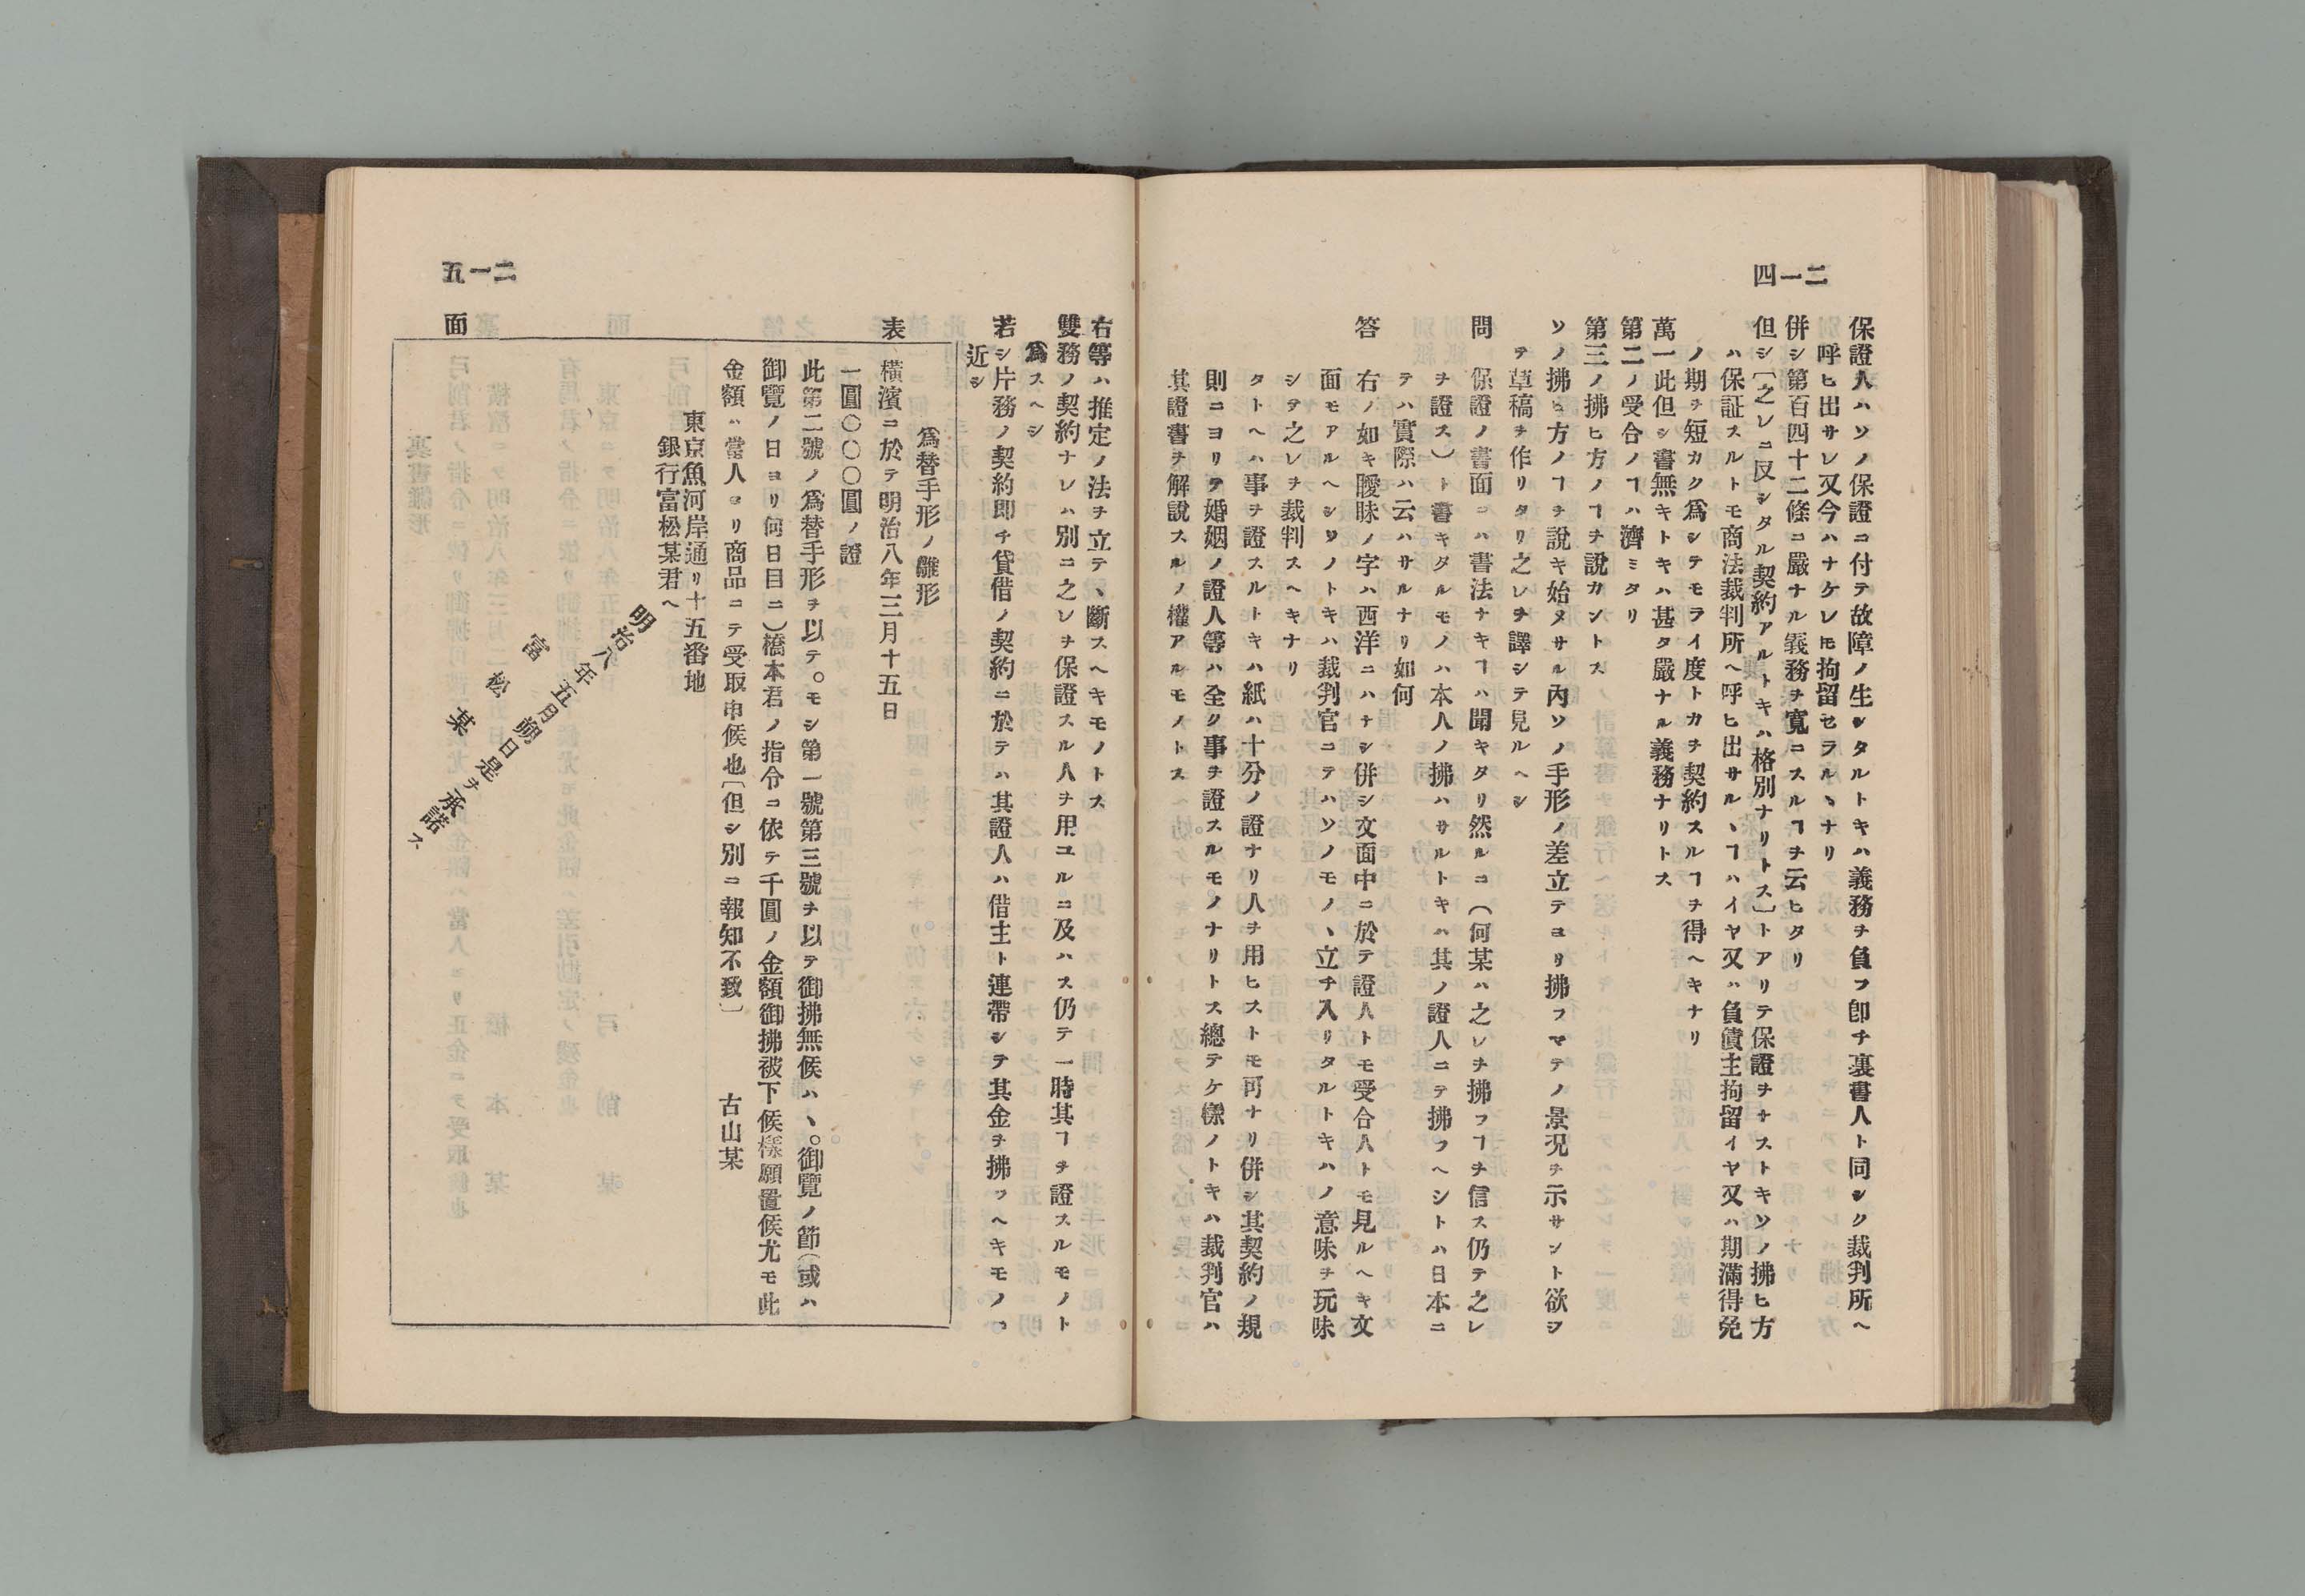 二一四
保證人ハソノ保證ニ付テ故障ノ生シタルトキハ義務ヲ負フ卽チ裏書人ト同シク裁判所ヘ
呼ヒ出サレ又今ハナケレモ拘留セラルヽナリ
併シ第百四十二條ニ嚴ナル義務ヲ寬ニスルヿヲ云ヒタリ
但シ〔之レニ反シタル契約アルトキハ格別ナリトス〕トアリテ保證ヲナストキソノ拂ヒ方
ハ保証スルトモ商法裁判所ヘ呼ヒ出サルヽヿハイヤ又ハ負債主拘留イヤ又ハ期滿得免
ノ期ヲ短カク爲シテモライ度トカヲ契約スルヿヲ得ヘキナリ
萬一此但シ書無キトキハ甚タ嚴ナル義務ナリトス
第二ノ受合ノヿハ濟ミタリ
第三ノ拂ヒ方ノヿヲ說カントス
ソノ拂ヒ方ノヿヲ說キ始メサル內ソノ手形ノ差立テヨリ拂フマテノ景況ヲ示サント欲シ
テ草稿ヲ作リタリ之レヲ譯シテ見ルヘシ
問 保證ノ書面ニハ書法ナキヿハ聞キタリ然ルニ(何某ハ之レヲ拂フヿヲ信ス仍テ之レ
ヲ證ス)ト書キタルモノハ本人ノ拂ハサルトキハ其ノ證人ニテ拂フヘシトハ日本ニ
テハ實際ハ云ハサルナリ如何
答 右ノ如キ曖昧ノ字ハ西洋ニハナシ併シ文面中ニ於テ證人トモ受合人トモ見ルヘキ文
面モアルヘシソノトキハ裁判官ニテハソノモノヽ立チ入リタルトキハノ意味ヲ玩味
シテ之レヲ裁判スヘキナリ
タトヘハ事ヲ證スルトキハ紙ハ十分ノ證ナリ人ヲ用ヒストモ可ナリ併シ其契約ノ規
則ニヨリテ婚姻ノ證人等ハ全ク事ヲ證スルモノナリトス總テケ樣ノトキハ裁判官ハ
其證書ヲ解說スルノ權アルモノトス
二一五
右等ハ推定ノ法ヲ立テヽ斷スヘキモノトス
雙務ノ契約ナレハ別ニ之レヲ保證スル人ヲ用ユルニ及ハス仍テ一時其ヿヲ證スルモノト
爲スヘシ
若シ片務ノ契約卽チ貸借ノ契約ニ於テハ其證人ハ借主ト連帶シテ其金ヲ拂フヘキモノニ
近シ
爲替手形ノ雛形
表
橫濱ニ於テ明治八年三月十五日
一圓〇〇〇圓ノ證
此第二號ノ爲替手形ヲ以テ。モシ第一號第三號ヲ以テ御拂無候ハヽ。御覽ノ節(或ハ
御覽ノ日ヨリ何日目ニ)橋本君ノ指令ニ依テ千圓ノ金額御拂被下候樣願置候尤モ此
金額ハ當人ヨリ商品ニテ受取申候也〔但シ別ニ報知不致〕
古山某
東京魚河岸通リ十五番地
銀行富松某君ヘ
明治八年五月朔日是ヲ承諾ス
富松某
面